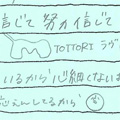 信じて 努力信じて
TOTTORI ラヴ
いるから 心細くないよ
応えんしてるから